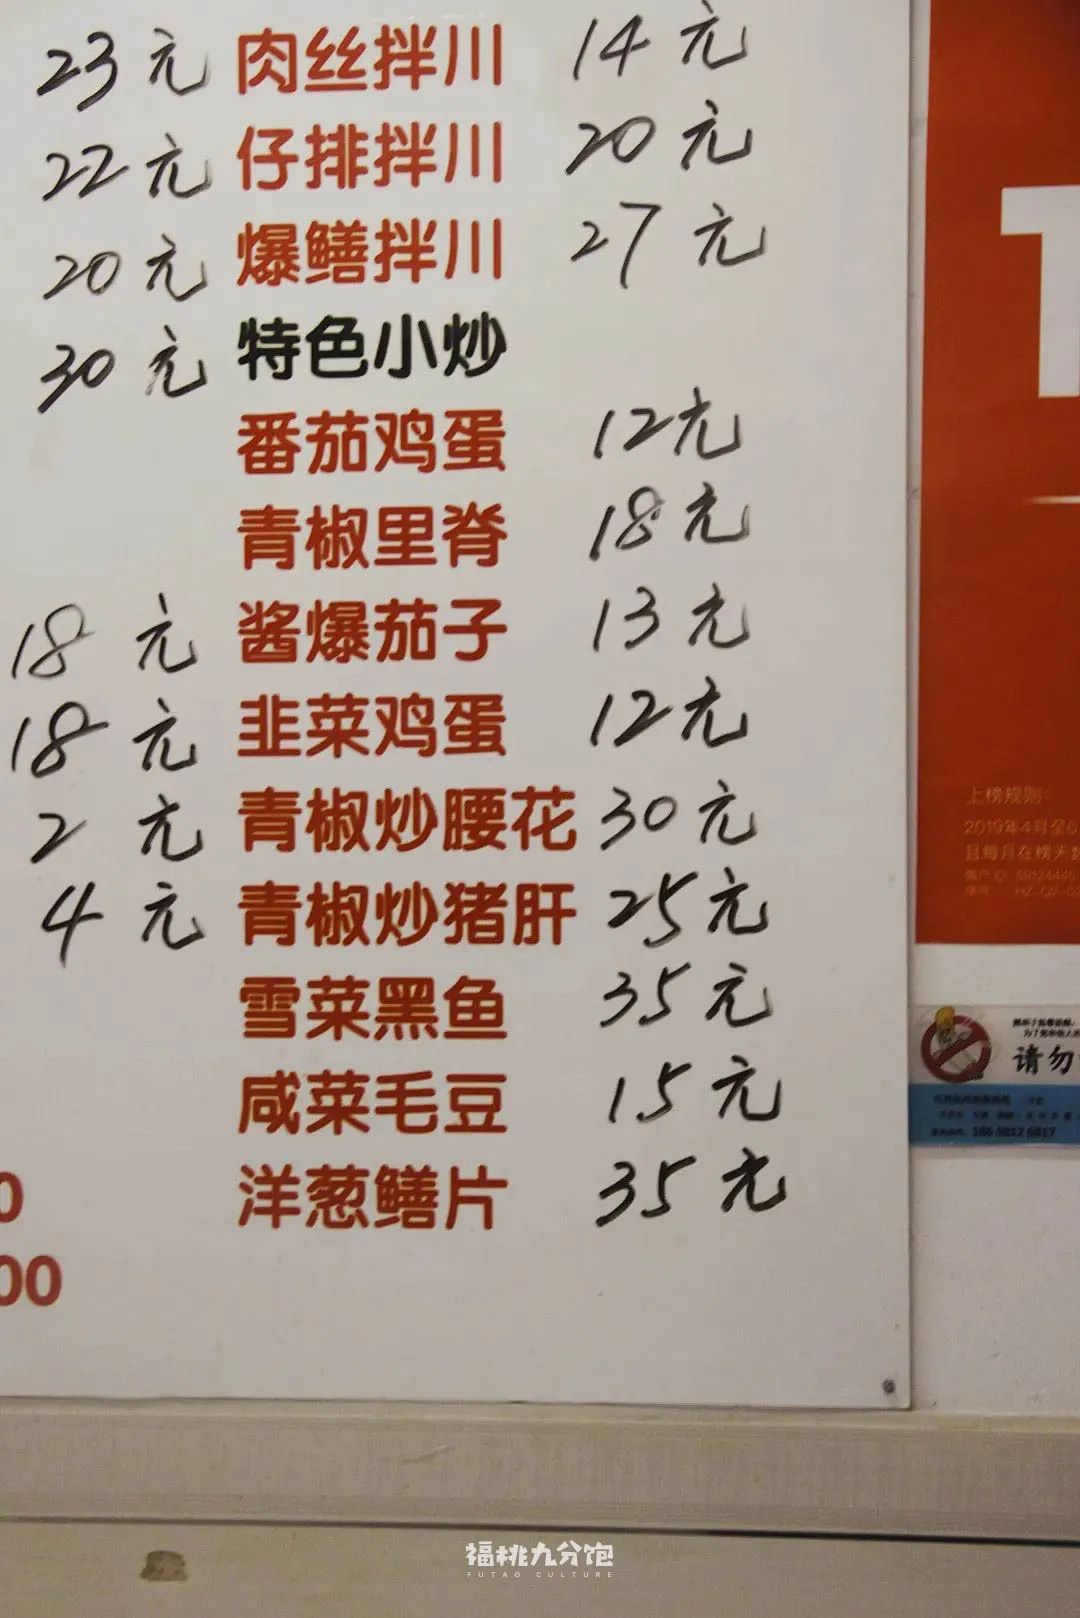 23元 肉丝拌川 14元
22元 仔排拌川 20元
20元 爆鳝拌川 27元
30元 特色小炒
番茄鸡蛋 12元
青椒里脊 18元
18元 酱爆茄子 13元
18元 韭菜鸡蛋 12元
2元 青椒炒腰花 30元
4元 青椒炒猪肝 25元
雪菜黑鱼 35元
咸菜毛豆 15元
0 洋葱鳝片 35元
00
上榜规则:
2019年4月至6
且每月在榜天
请勿
福桃九分饱
FUTAO CULTURE